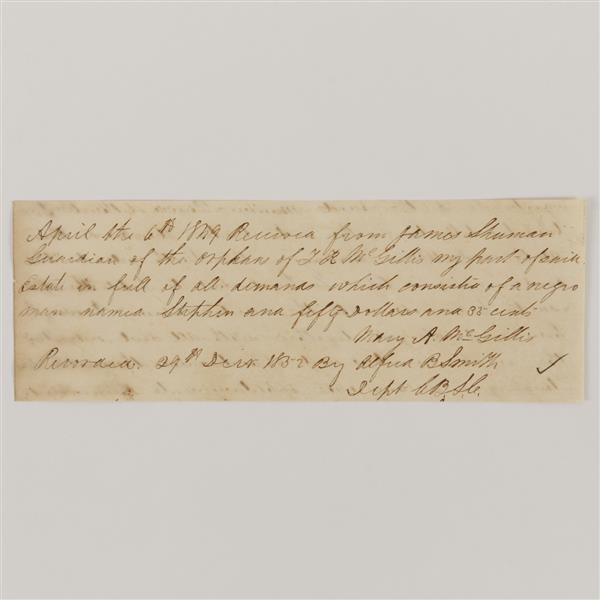 April the 6th 1849 Received from James Shuman
Guardian of the orphans of T R McGillis my part of said
Estate in full of all demands which consists of a negro
man named Stephen and fifty Dollars and 35 cents
Mary A. McGillis
Recorded 29th Decr 185 By B Smith
Dept C.B.S.C.